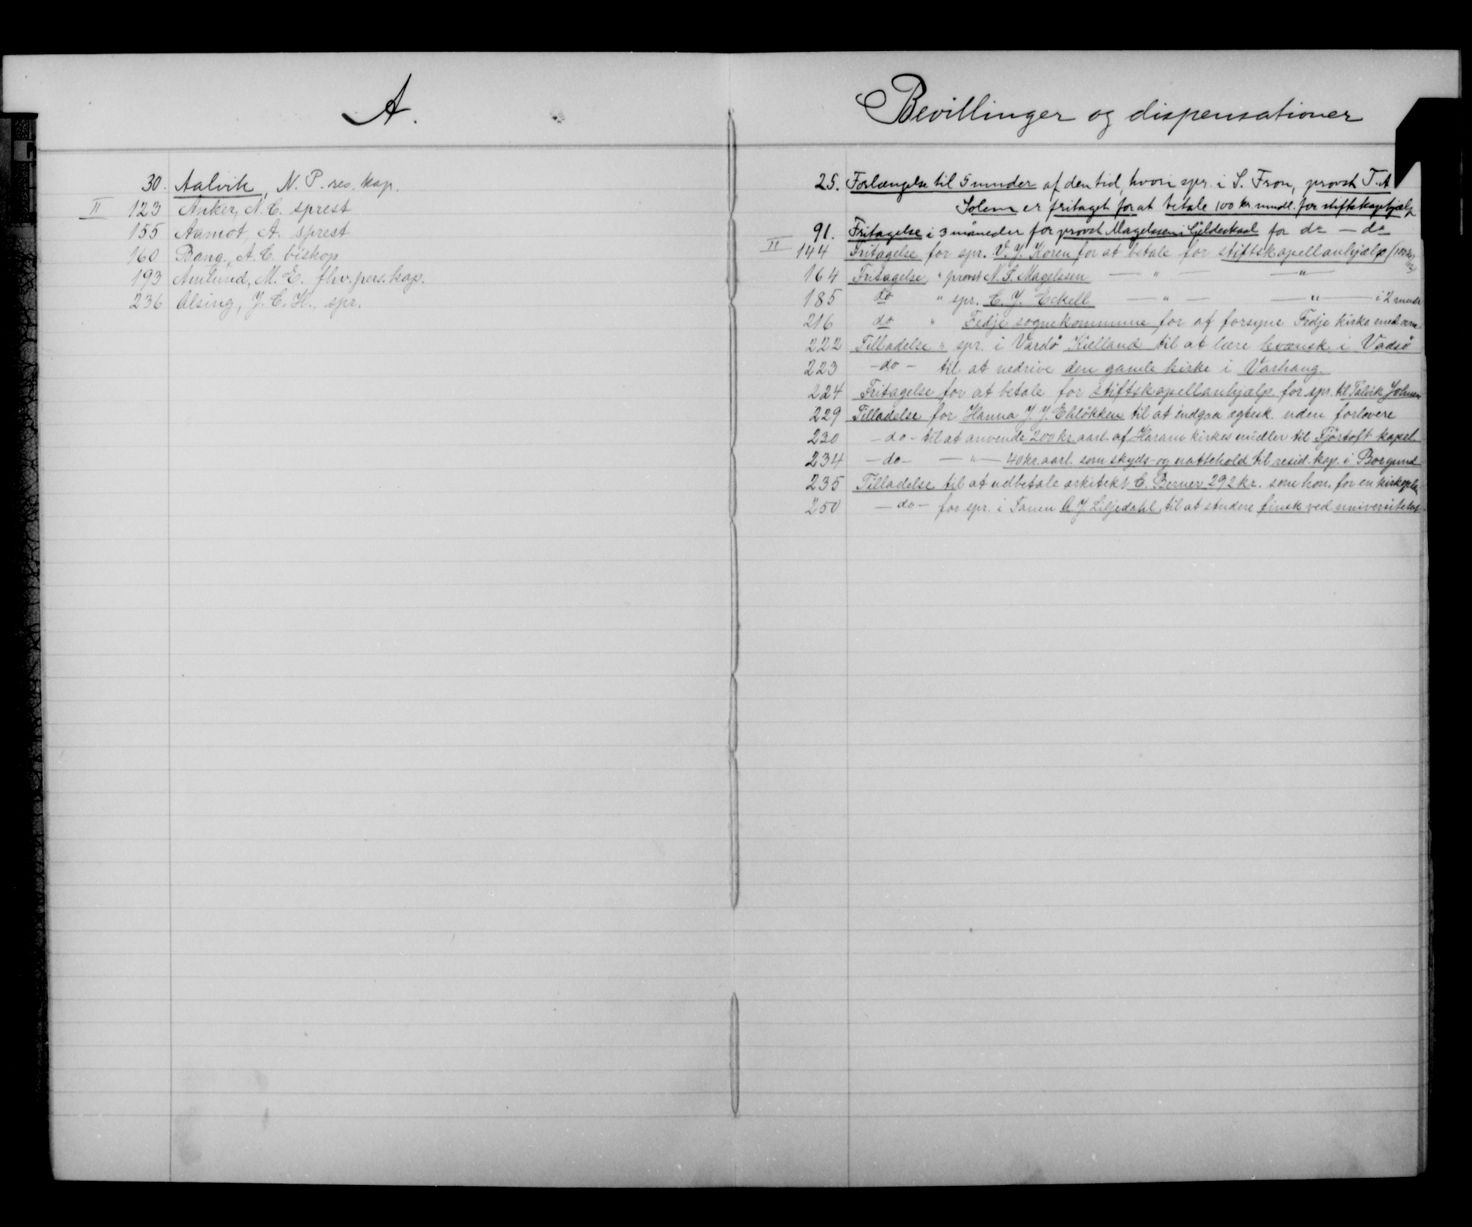 A.
30. Aalvik, N. P. res. kap.
II 123 Anker, N. C. sprest
155 Aamot, A. sprest
160 Bang, A. C. biskop
193 Amlund, M. E. fhv. pers. kap.
236 Alsing, J. C. H., spr.
Bevillinger og dispensationer
25. Forlængelse til 5 mnder af den tid, hvori spr. i S. Fron, provst T. A
Solem er fritaget for at betale 100 kr mndl. for stiftskaphjælp
91. Fritagelse i 3 måneder for provst Magelssen i Gildeskaal for do — do
II 144 Fritagelse for spr. V. J. Koren for at betale for stiftskapellanhjælp
164 Fritagelse " provst N. S. Magelssen — " — — " —
185 do " spr. C. J. Eckell — " — — " — i 2 mndr
216 do " Fedje sognekommune for af forsyne Fedje kirke med ovn
222 Tilladelse " spr. i Vardö Kielland til at lære kvænsk i Vadsö
223 — do — til at nedrive den gamle kirke i Varhaug.
224 Fritagelse for at betale for stiftskapellanhjælp for spr. til Talvik Johnsen
229 Tilladelse for Hanna J. J. Eklökken til at indgaa egtesk uden forlovere
230 — do — til at anvende 200 kr. aarl. af Harams kirkes midler til Fjörtoft kapel
234 — do — — " — 40 kr. aarl. som skyds- og nattehold til resid. kap. i Borgund
235 Tilladelse til at udbetale arkitekt C. Berner 292 kr. som hon. for en kirkepla
250 — do — for spr. i Tanen A. J. Liljedahl til at studere finsk ved universitetet